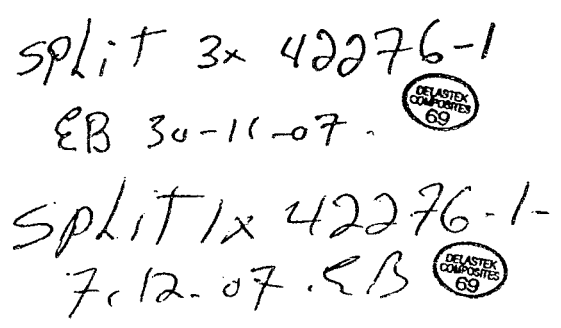 split 3x 42276-1
DELASTEK
COMPOSITES
69
EB 30-11-07.
split 1x 42276-1-
7.12-07.EB
DELASTEK
COMPOSITES
69